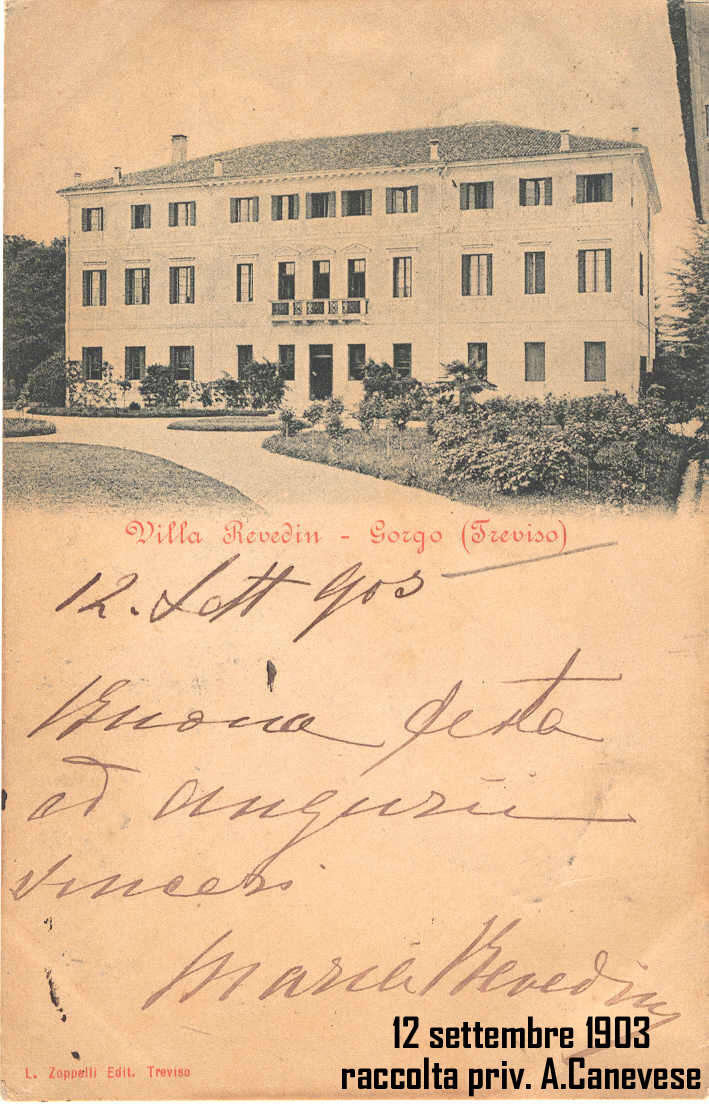 Villa Revedin - Gorgo (Treviso)
12. Sett 903
Buona festa
ed auguri
sinceri
Maria Revedin
12 settembre 1903
raccolta priv. A.Canevese
L. Zoppelli Edit. Treviso